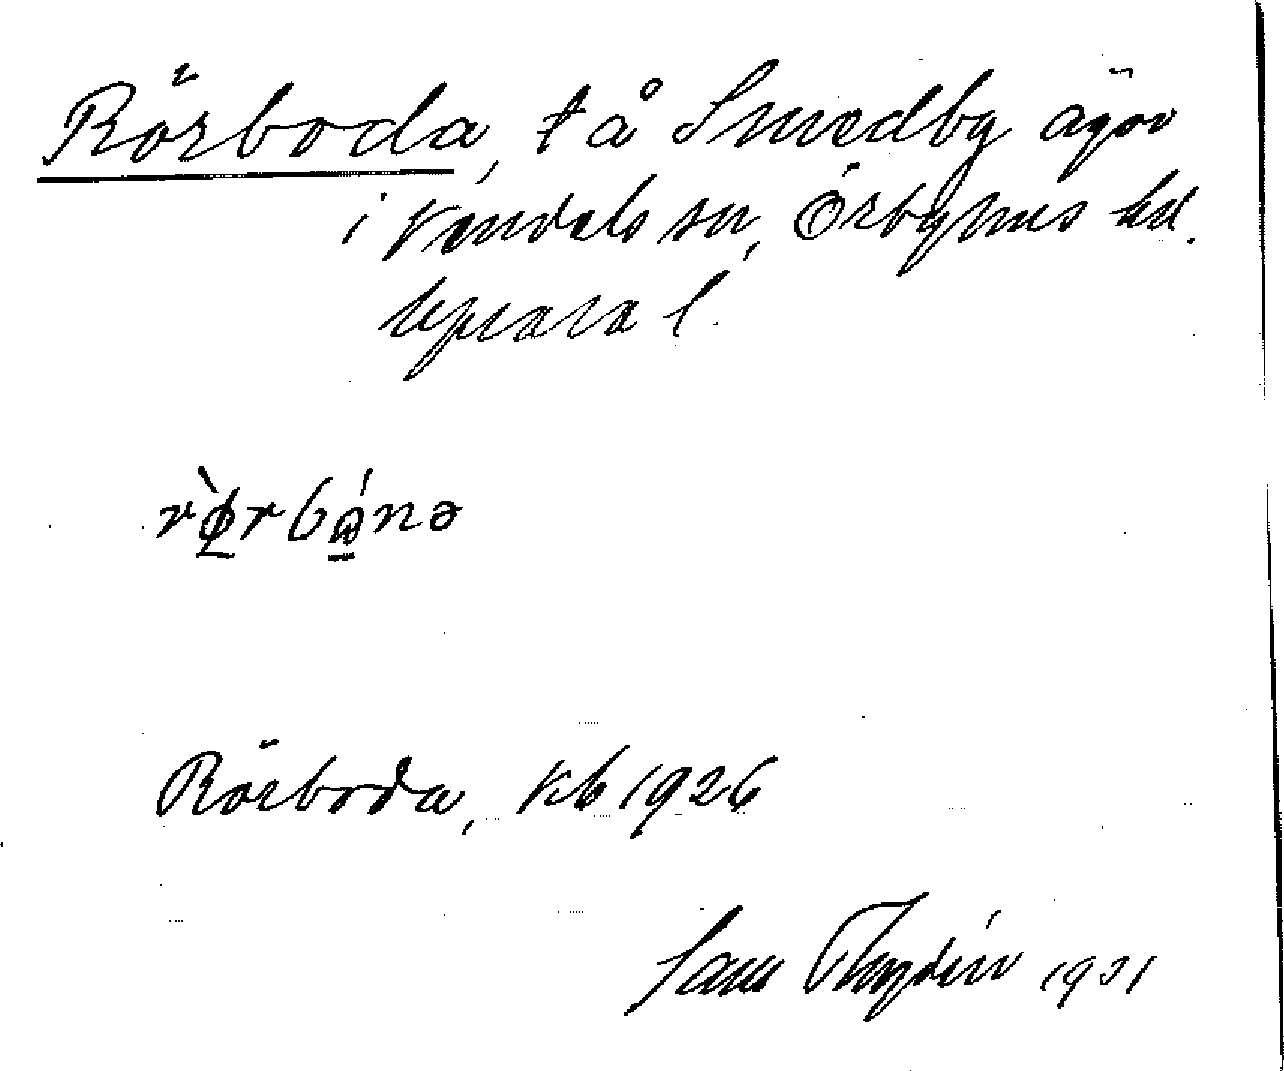 Rörboda, t å Smedby ägor
i Vendels sn, Örbyhus hd.
Uppsala l.
rø̀rbɷ́nə
Rörboda, Kb 1926
Sam 1931